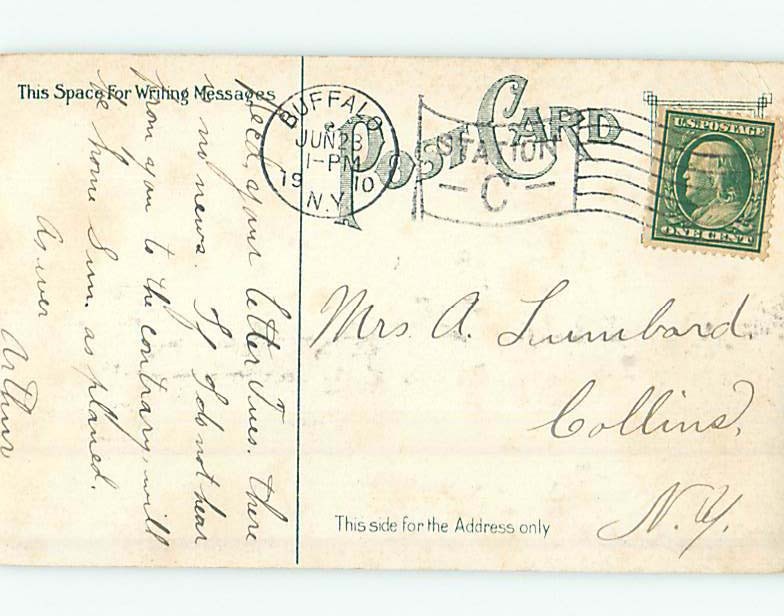 This Space For Writing Messages
POST CARD
BUFFALO
JUN 23
1-PM
19 10
N.Y.
STATION
- C -
U.S. POSTAGE
ONE CENT
Recd. your letter Tues. There
is no news. If I do not hear
from you to the contrary, will
be home Sun. as planed.
As ever
Arthur
Mrs. A. Lumbard.
Collins,
N.Y.
This side for the Address only